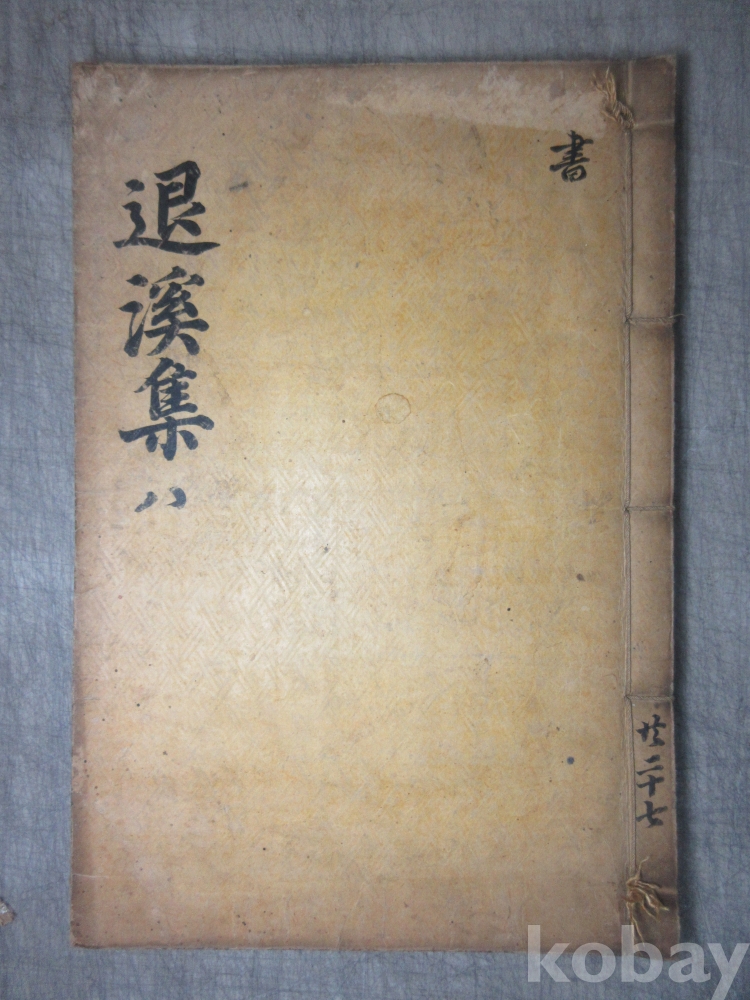 書
退溪集 八
共二十七
kobay